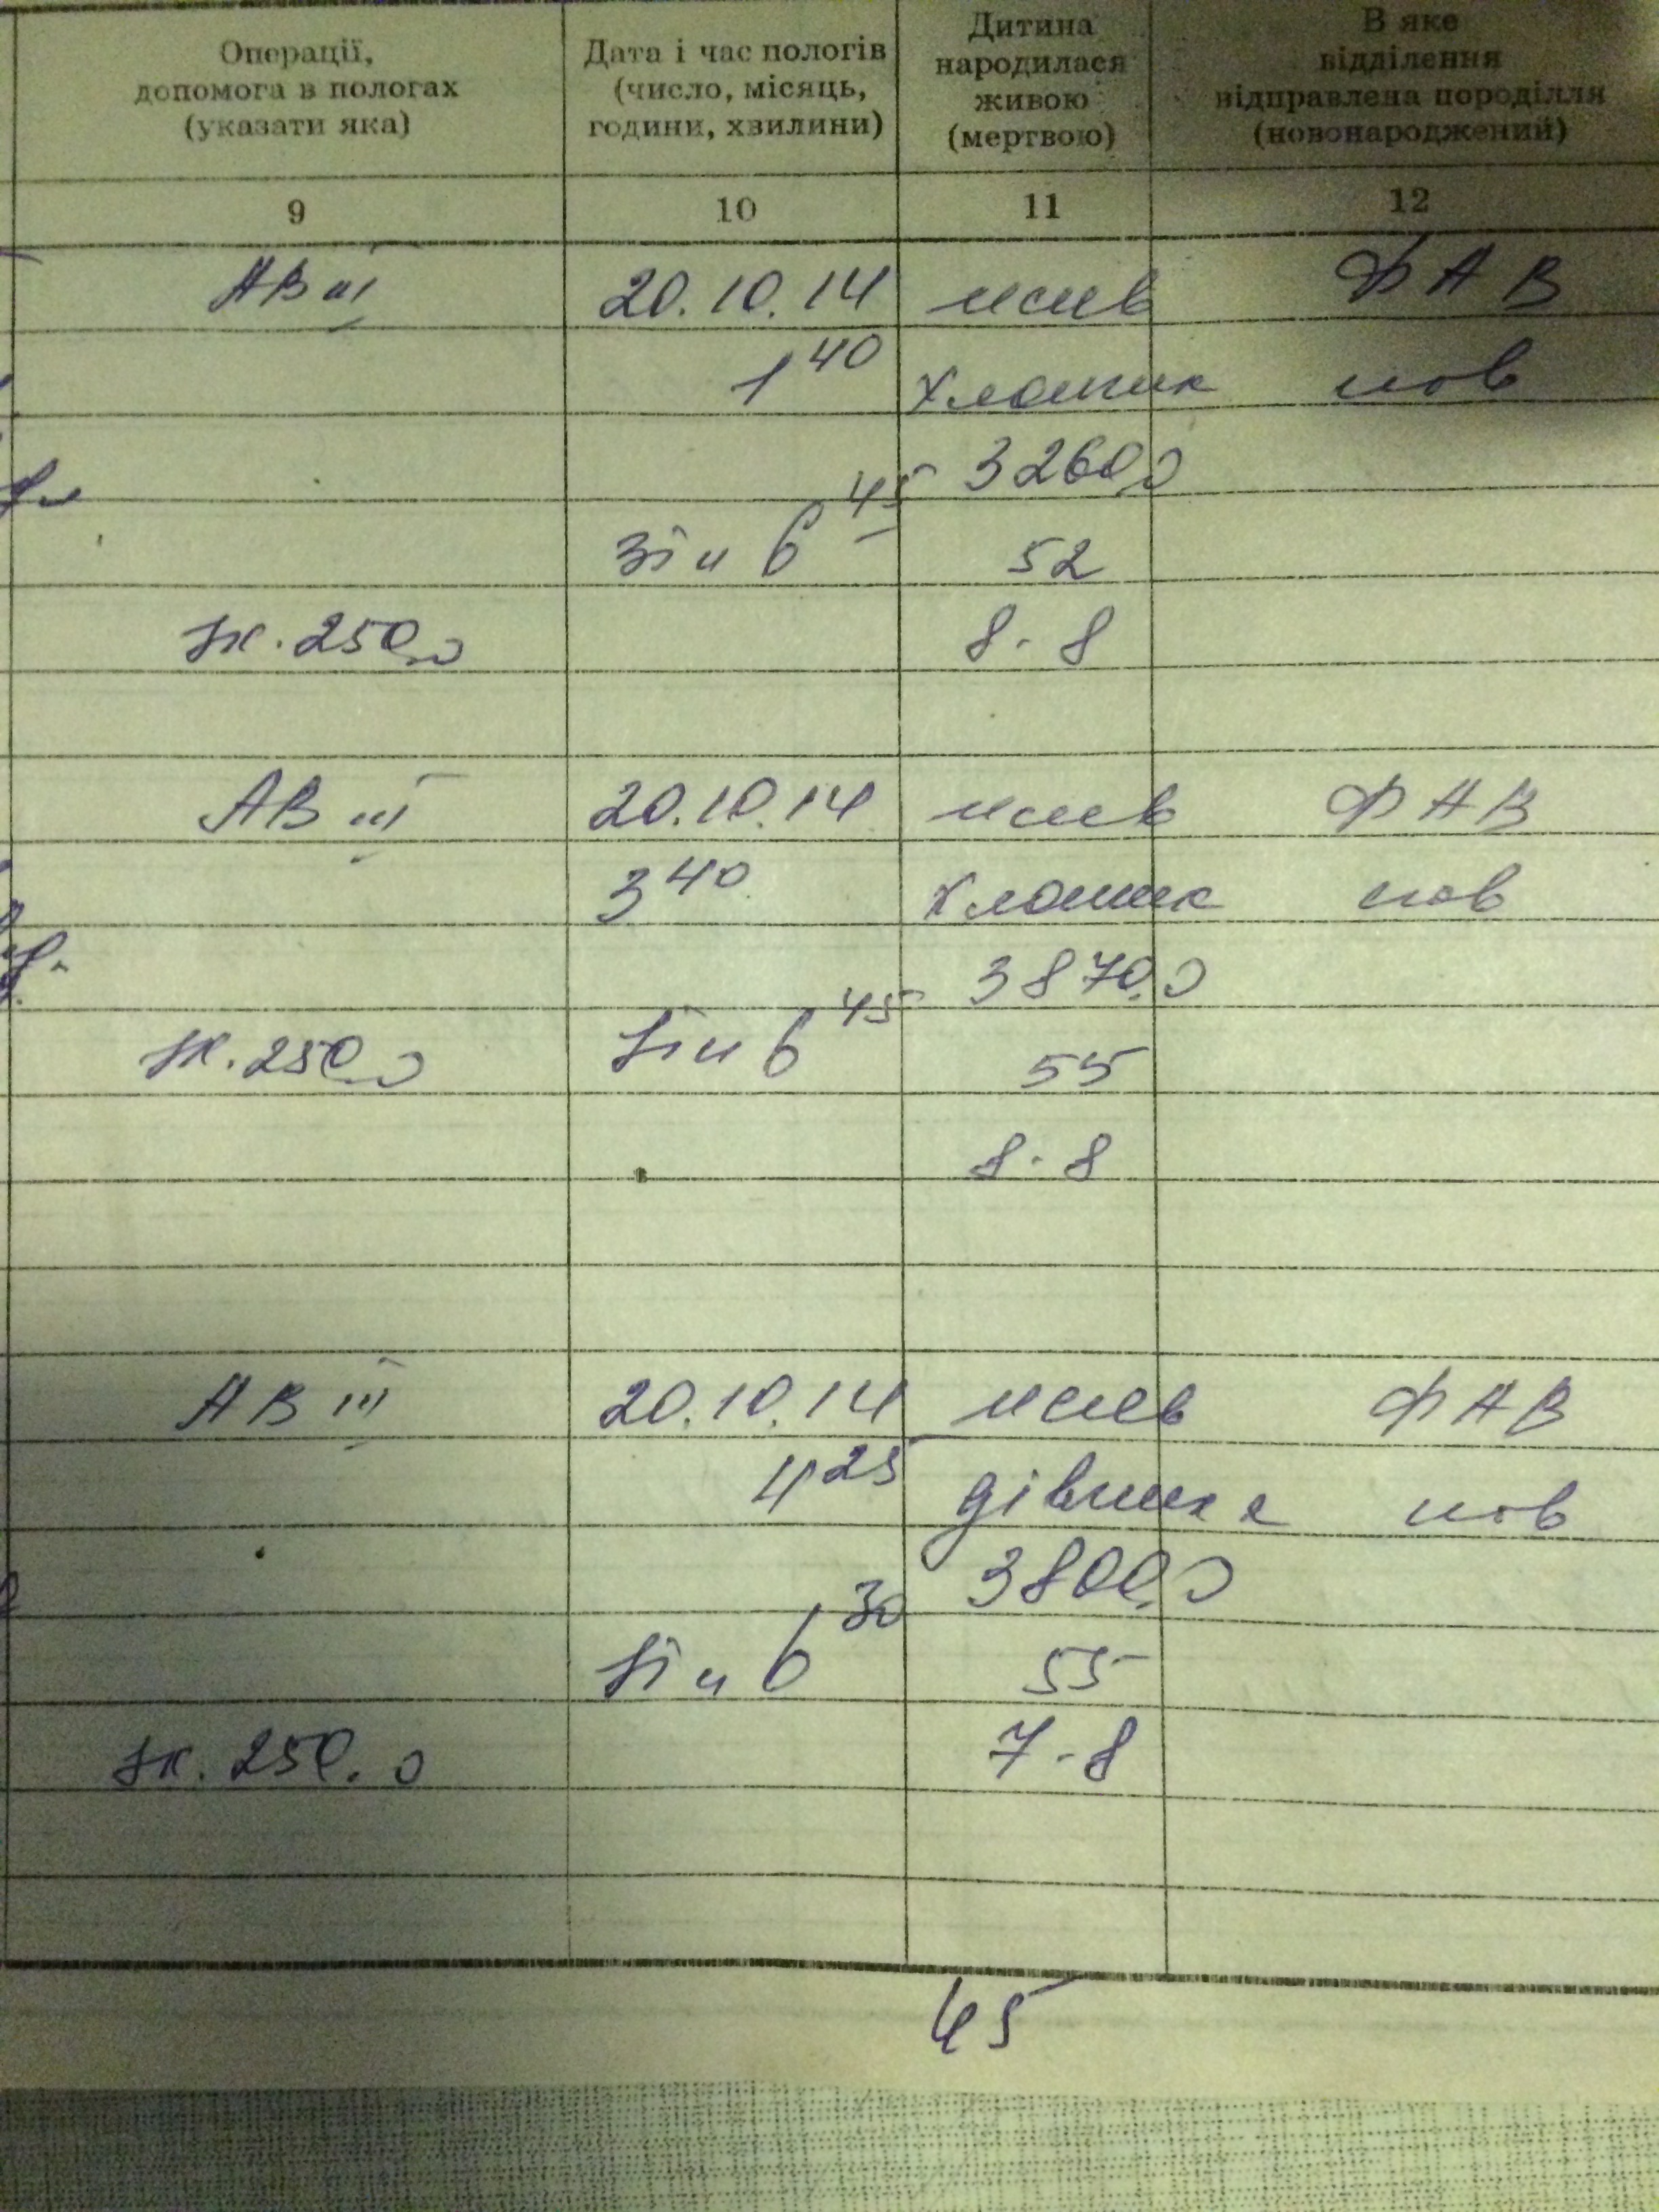 Операції,
допомога в пологах
(указати яка)
Дата і час пологів
(число, місяць,
години, хвилини)
Дитина
народилася
живою
(мертвою)
В яке
відділення
відправлена породілля
(новонароджений)
9 10 11 12
АВ III 20.10.14 жив ФАВ
1 40 хлопчик нов
3260,0
45
6 52
зк. 250,0 8-8
АВ III 20.10.14 жив ФАВ
3 40 хлопчик нов
3870,0
зк. 250,0 6 45 55
8-8
АВ III 20.10.14 жив ФАВ
4 25 дівчинка нов
3800,0
6 30 55
зк. 250,0 7-8
45